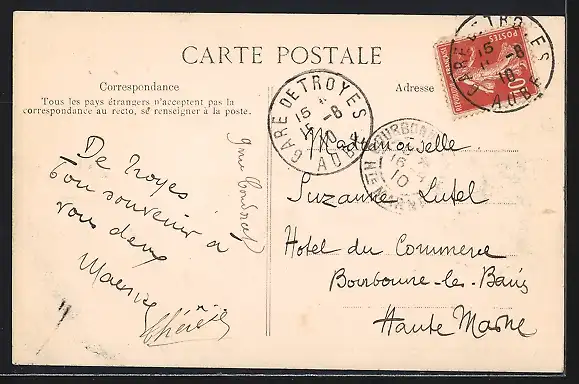 CARTE POSTALE
Correspondance
Tous les pays étrangers n'acceptent pas la
correspondance au recto, se renseigner à la poste.
Adresse
De Troyes
bon souvenir à
vous deux
Maurice
GARE DE TROYES
15 -8
10
AUBE
POSTES
10
GARE DE TROYES
15 -8
10
AUBE
BOURBONNE
16
10
Mademoiselle
Suzanne Lutel
Hotel du Commerce
Bourbonne-les-Bains
Haute Marne